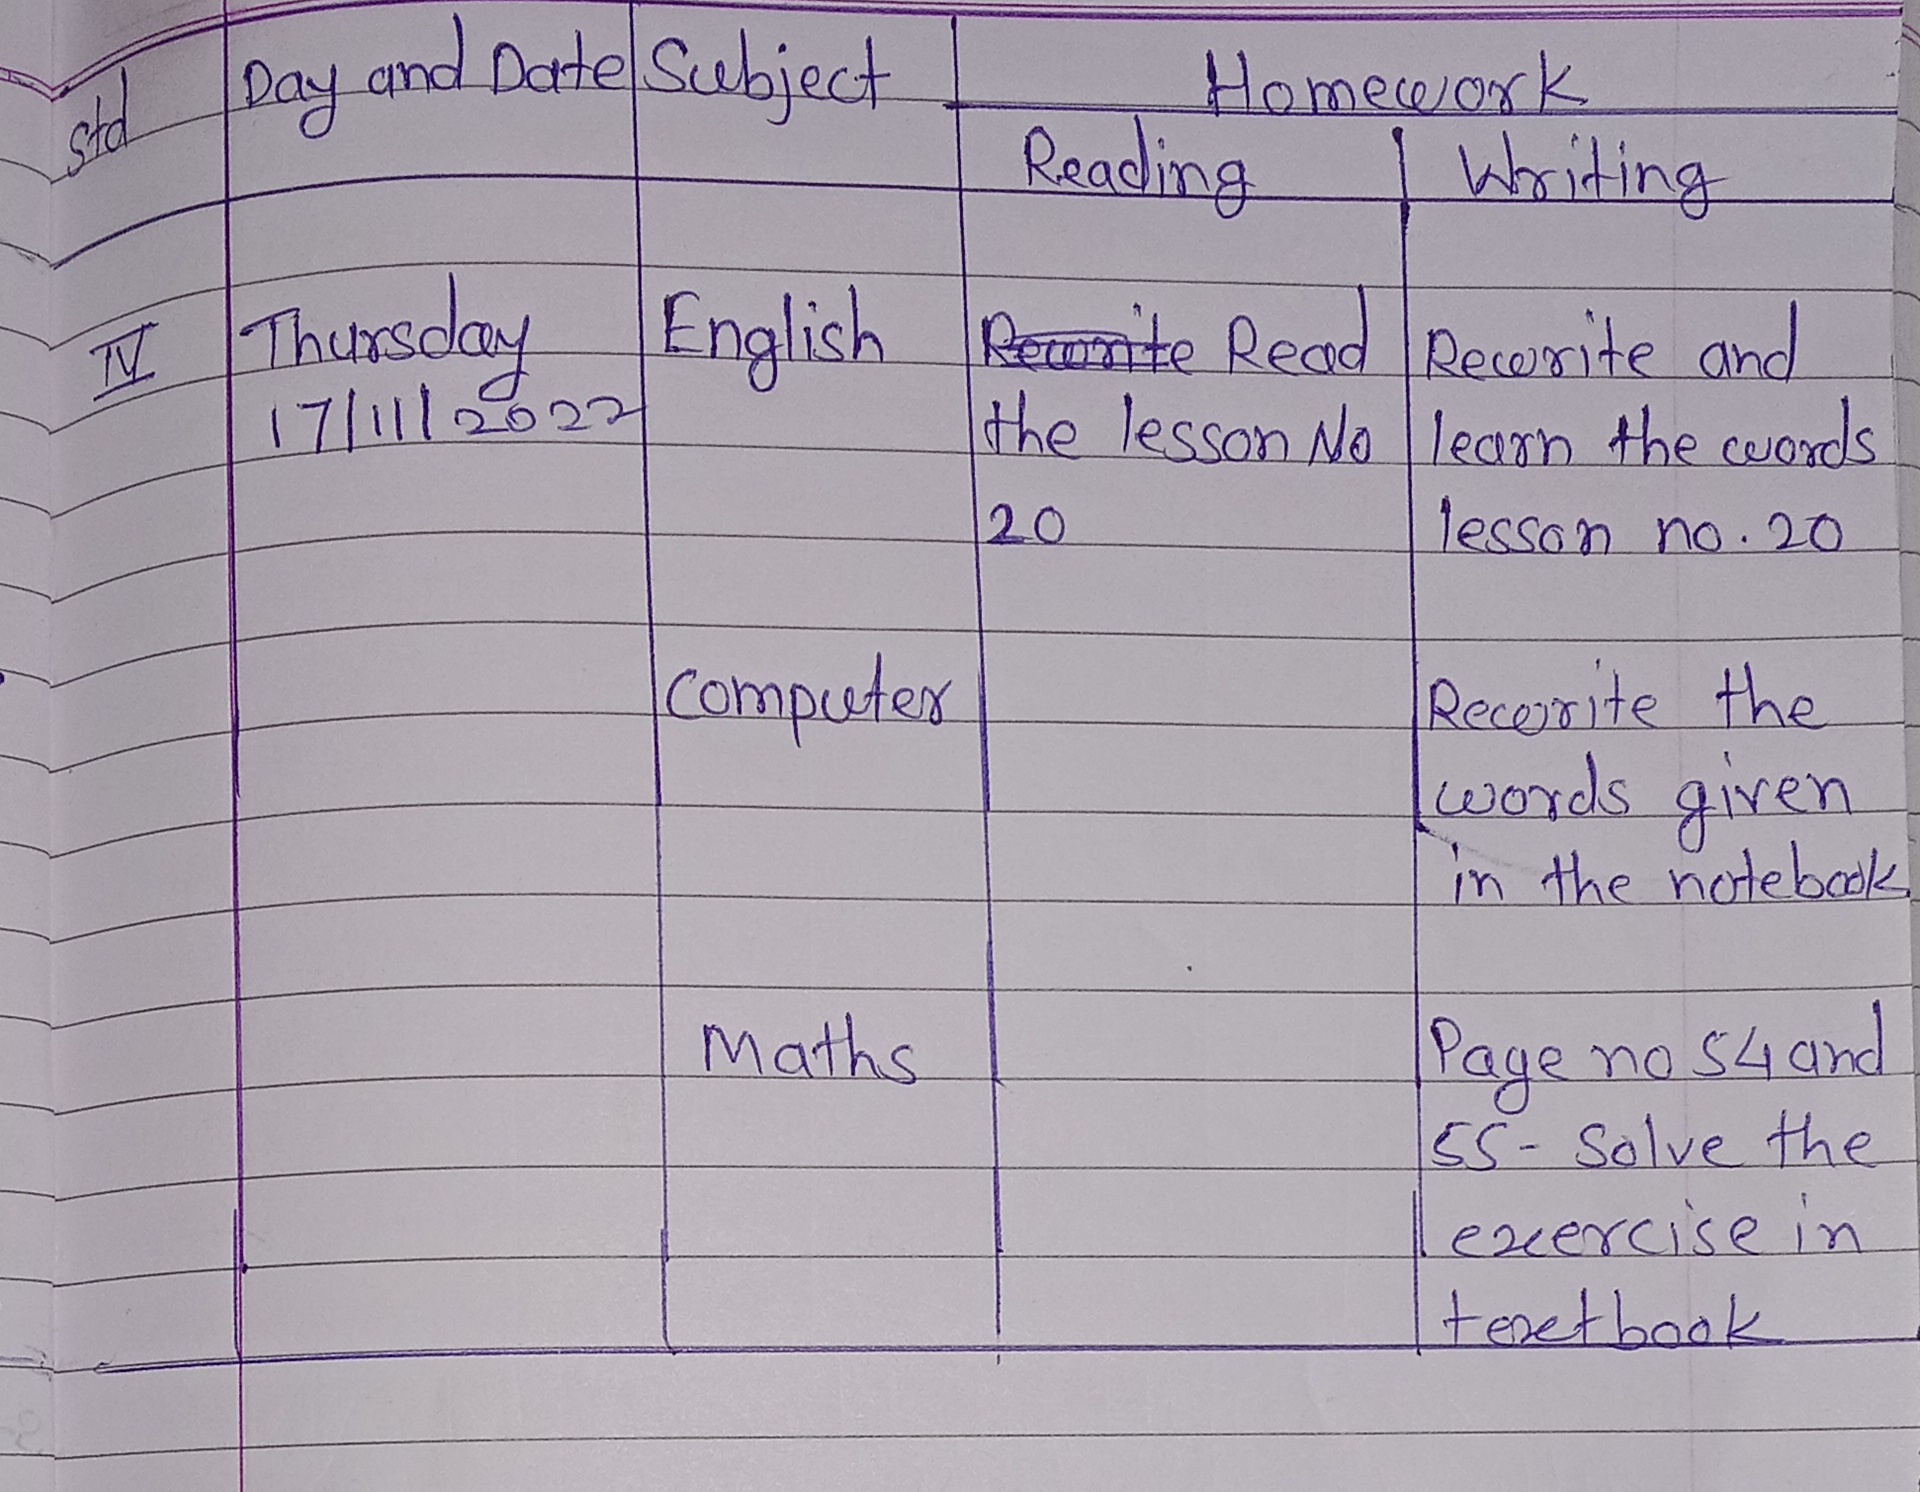 std Day and Date Subject Homework
Reading Writing
IV Thursday English Rewrite Read Rewrite and
17/11/2022 the lesson No learn the words
20 lesson no. 20
Computer Rewrite the
words given
in the notebook
Maths Page no 54 and
55- Solve the
exercise in
textbook